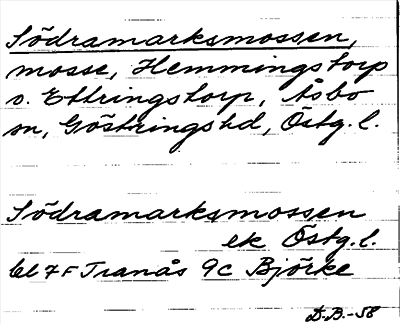 Södramarksmossen,
mosse, Hemmingstorp
o. Ettringstorp, Åsbo
sn, Göstringshd, Östg.l.
Södramarksmossen
ek Östg.l.
bl 7F Tranås 9c Björke
D.B.-58